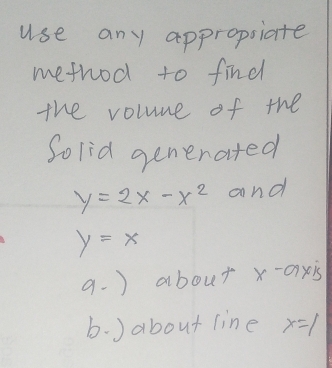 use any appropriate
method to find
the volume of the
Solid generated
y = 2x - x² and
y = x
a.) about x-axis
b.) about line x=1